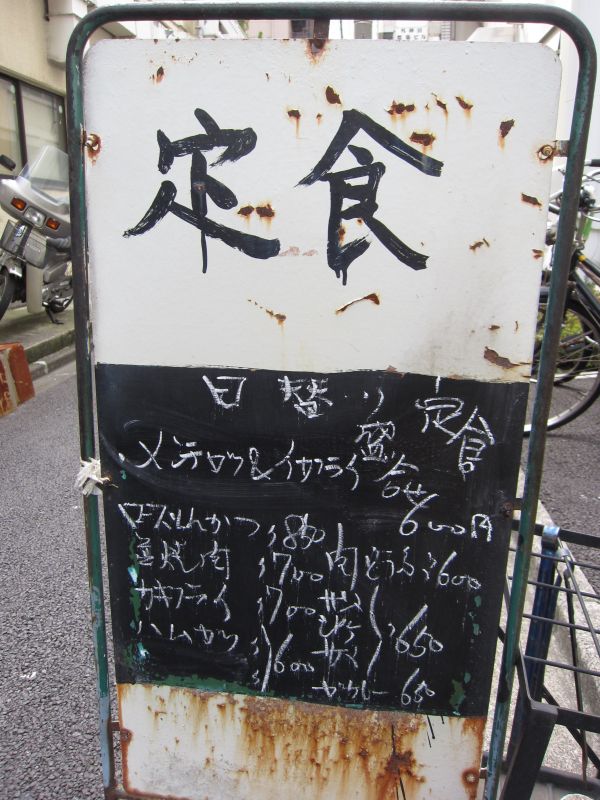 定食
日替り定食
メンチカツ&イカフライ盛合せ
600円
ロースとんかつ 800
生姜焼肉 700 肉どうふ 600
カキフライ 700
ハムカツ 600 650
カツカレー 650